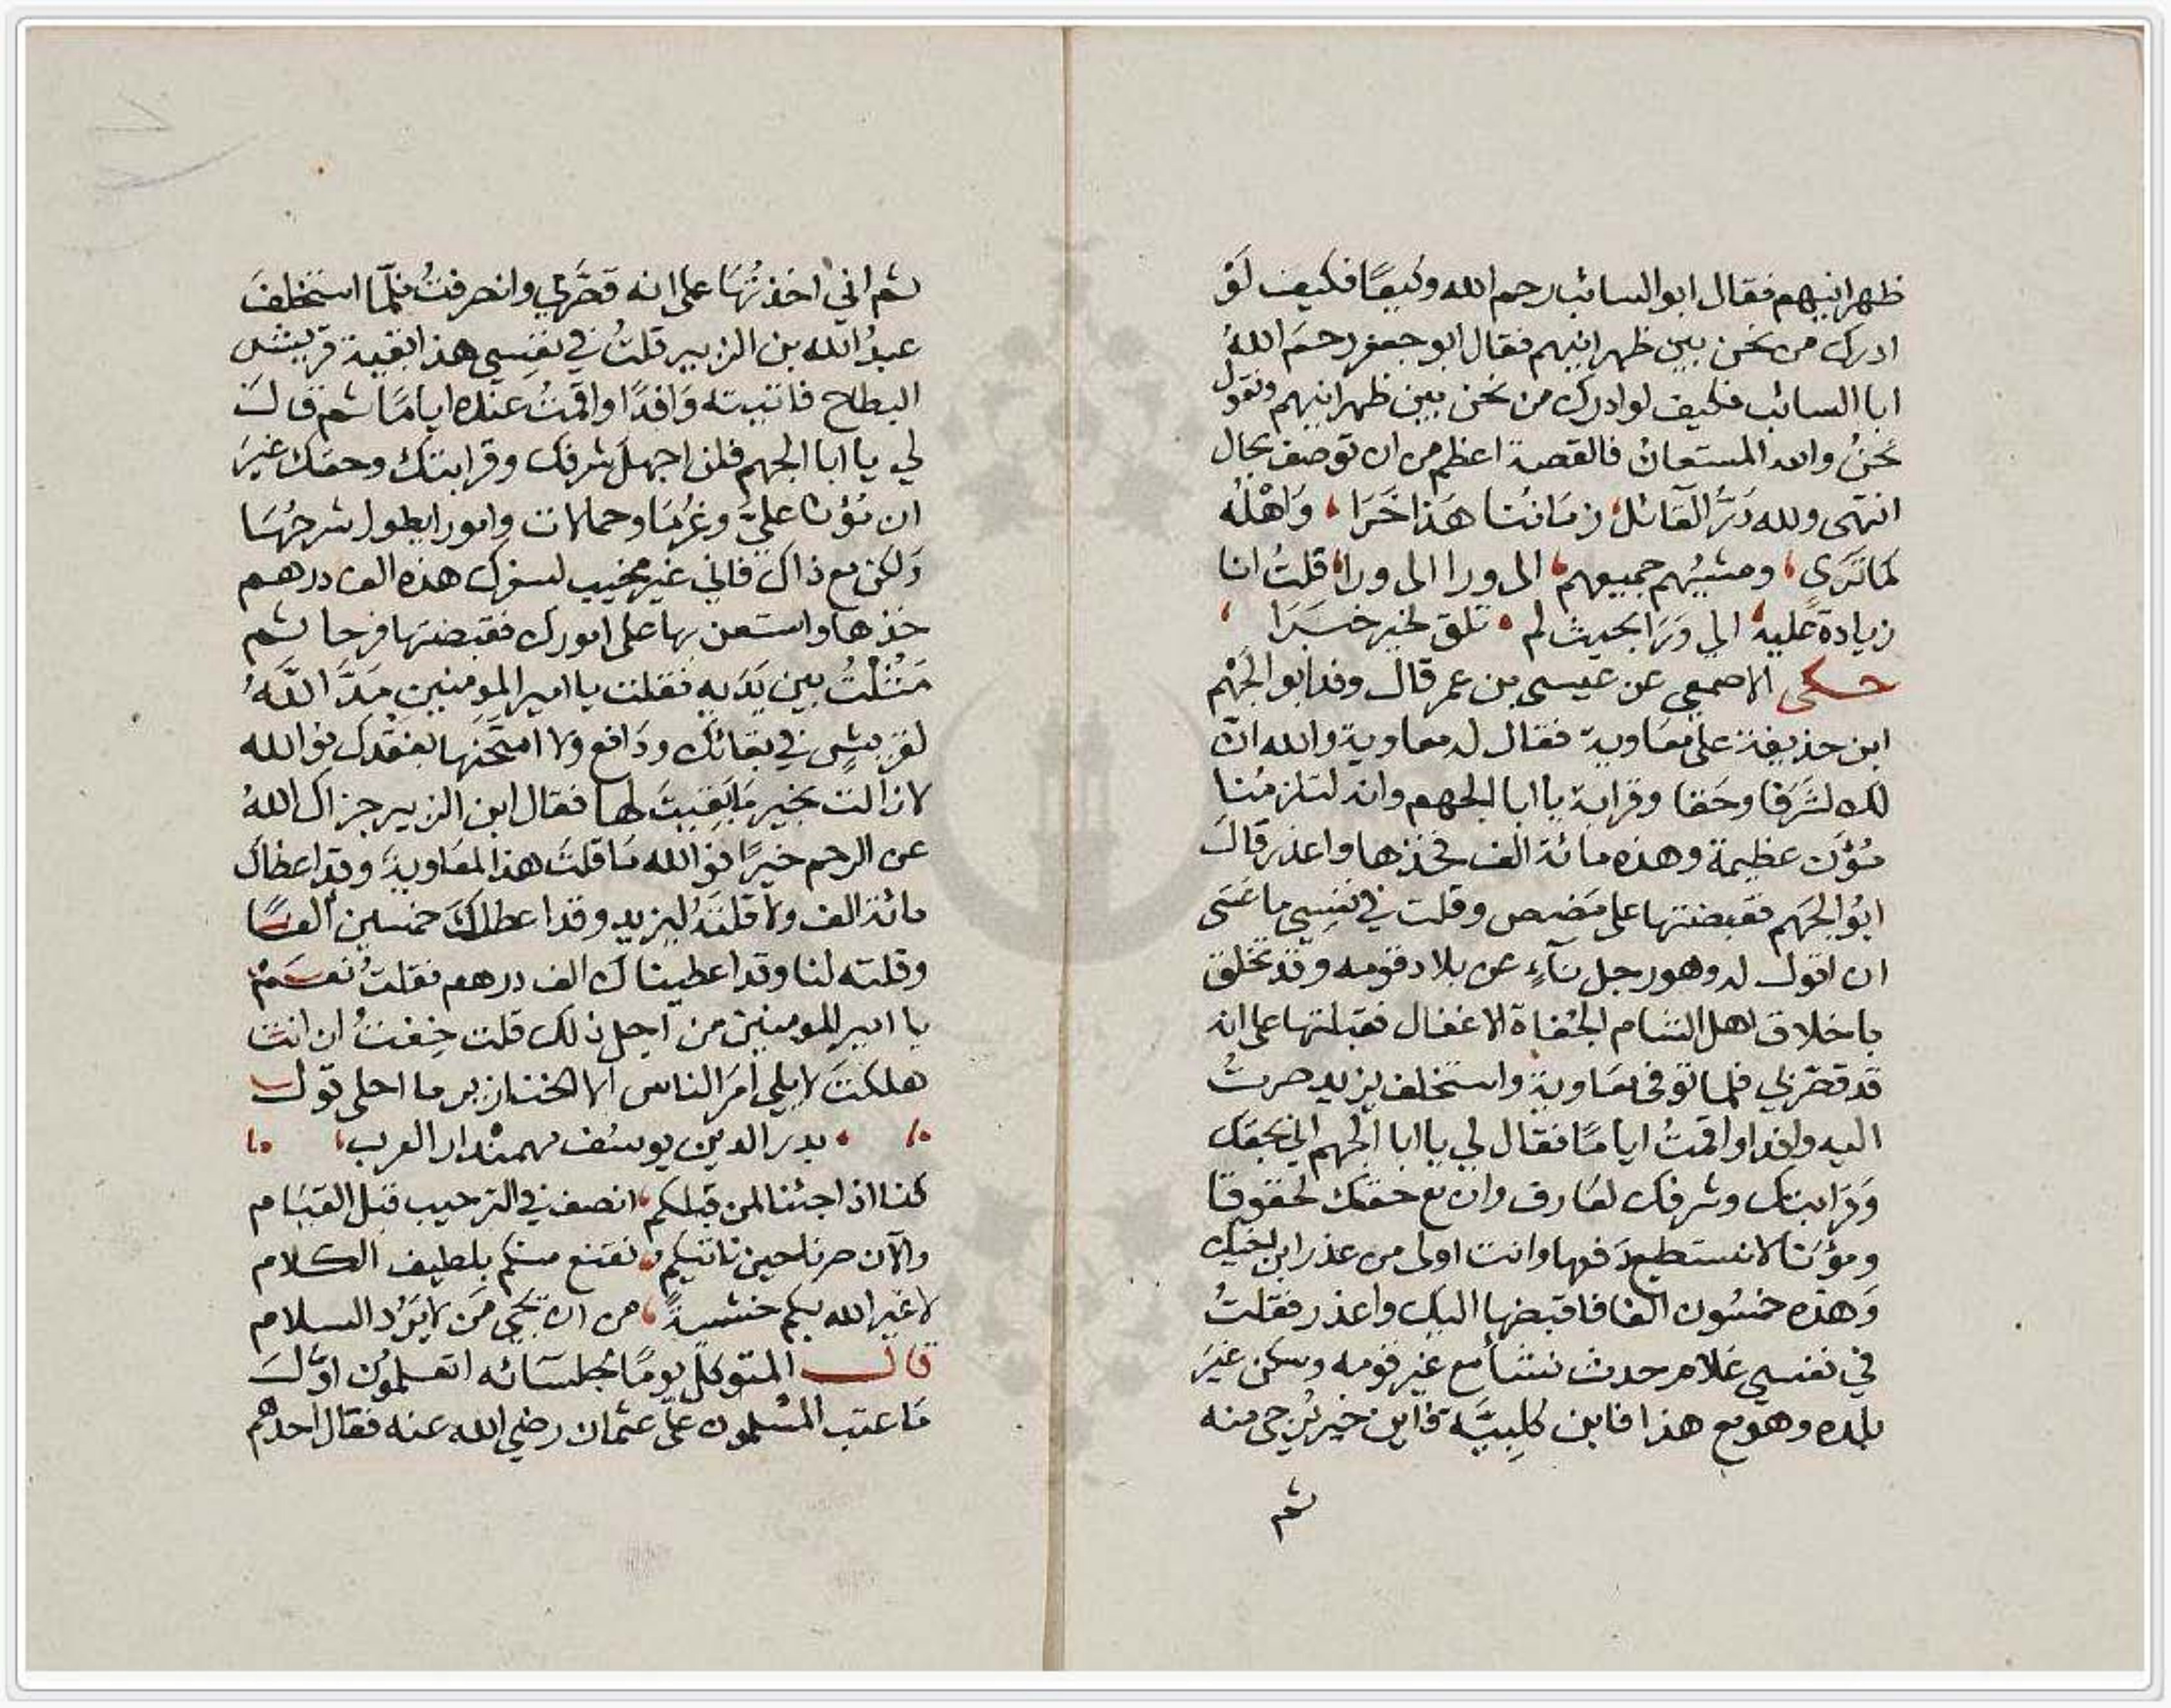 ظهرانيهم فقال ابو السائب رحم الله وكيعًا فكيف لَوْ
ادرك من نحن بين ظهرانيهم فقال ابو جعفر رحمَ اللهُ
ابا السائب فكيف لو ادرك من نحن بين ظهرانيهم ونقول
نحنُ والله المستعانُ فالقصة اعظم من ان توصف بحال
انتهى ولله دَرُّ القائل زمَانُنا هَذا خَرَا ، وَاهْلُه
كمَا تَرَى ، ومشيُهم جميعهم ، الى ورا الى ورا ، قلتُ انا
زيادة عَليه ، الي وَرَا بحيث لم ، تلق لخير خَبَرَا ،
حكى الاصمعي عن عيسى بن عمر قال وفد ابو الجَهْم
ابن حذيفة على معَاوية فقال له معاوية والله انّ
لك لشَرَفا وحَقا وقرابة يا ابا الجهم وانه لتلزمُنا
مُؤَن عظيمة وهذه مائة الف فخذها واعذر قالَ
ابُو الجَهم فقبضتها على مَضض وقلت في نفسِي ما عَسَى
ان اقول له وهو رجل نآءٍ عن بلاد قومه وقد تخلق
باخلاق اهل الشام الجُفاة الاغفال فقبلتها على انه
قد قصّر بي فلما توفى معَاوية واستخلف يزيد صرتُ
اليه وافدا واقمتُ ايامًا فقال لي يا ابا الجهم اني بحقك
وَقرَابتك وشرفك لعَارف وان مع حقك لحقوقا
ومؤنًا لا نستطيع دَفعها وانت اولى من عذر ابن اخيك
وَهذه خمسُون الفا فاقبضها اليك واعذر فقلتُ
في نفسي غلام حدث نشأ مع غير قومه وسكن غيَر
بلده وهو مع هذا فابن كلبِيَّة فاين خير يُرجى منه
ثم
ثم اني اخذتُهَا على انه قصَّر بي وانصرفتُ فلمّا استخلفَ
عبدُ الله بن الزبير قلتُ في نفسِي هذا بقية قريش
البطاح فاتيته وَافدًا واقمتُ عنده ايامًا ثم قالَ
لي يا ابا الجهم فلن اجهلَ شرفك وقرابتك وحقك غيرَ
ان مُؤنا عليَّ وغُرمًا وحمالات وامورا يطول شرحُهَا
وَلكن مع ذاك فاني غير مخيب لسفرك هذه الف درهم
خذها واستعن بها على امورك فقبضتها فرحا ثم
مَثُلْتُ بين يَدَيه فقلت يا امير المومنين مَدَّ اللّهُ
لقريشٍ في بقائك ودَافع ولا امتحَنها بفقدك فوالله
لا زالت بخير مَا بَقيتَ لها فقال ابن الزبير جزاك اللهُ
عن الرحم خيرًا فوالله مَا قلتَ هذا لمعَاويةَ وقد اعطاك
مائة الف ولا قلتَهُ ليزيد وقد اعطاكَ خمسين ألفًا
وقلته لنا وقد اعطيناك الف درهم فقلتُ نعَم
يا امير المومنين من اجل ذلك قلت خِفتُ ان انتَ
هلكتَ لا يلي أمرَ الناس الا الخنازير ما احلى قول
بدر الدين يوسُف مهمندار العرب ،
كنا اذا جئنا لمن قبلكم ، انصف في الترحيب قبل القيَام
والآن صرنا حين ناتيكم ، نقنع منكم بلطيف الكلام
لا غير الله بكم خشيةً ، من ان يَجي مَن لا يَرُد السلام
قال المتوكل يومًا لجلسَائه اتعلمُون اوّلَ
مَا عتب المسْلمون عَلى عثمان رضي الله عنه فقال احدهم